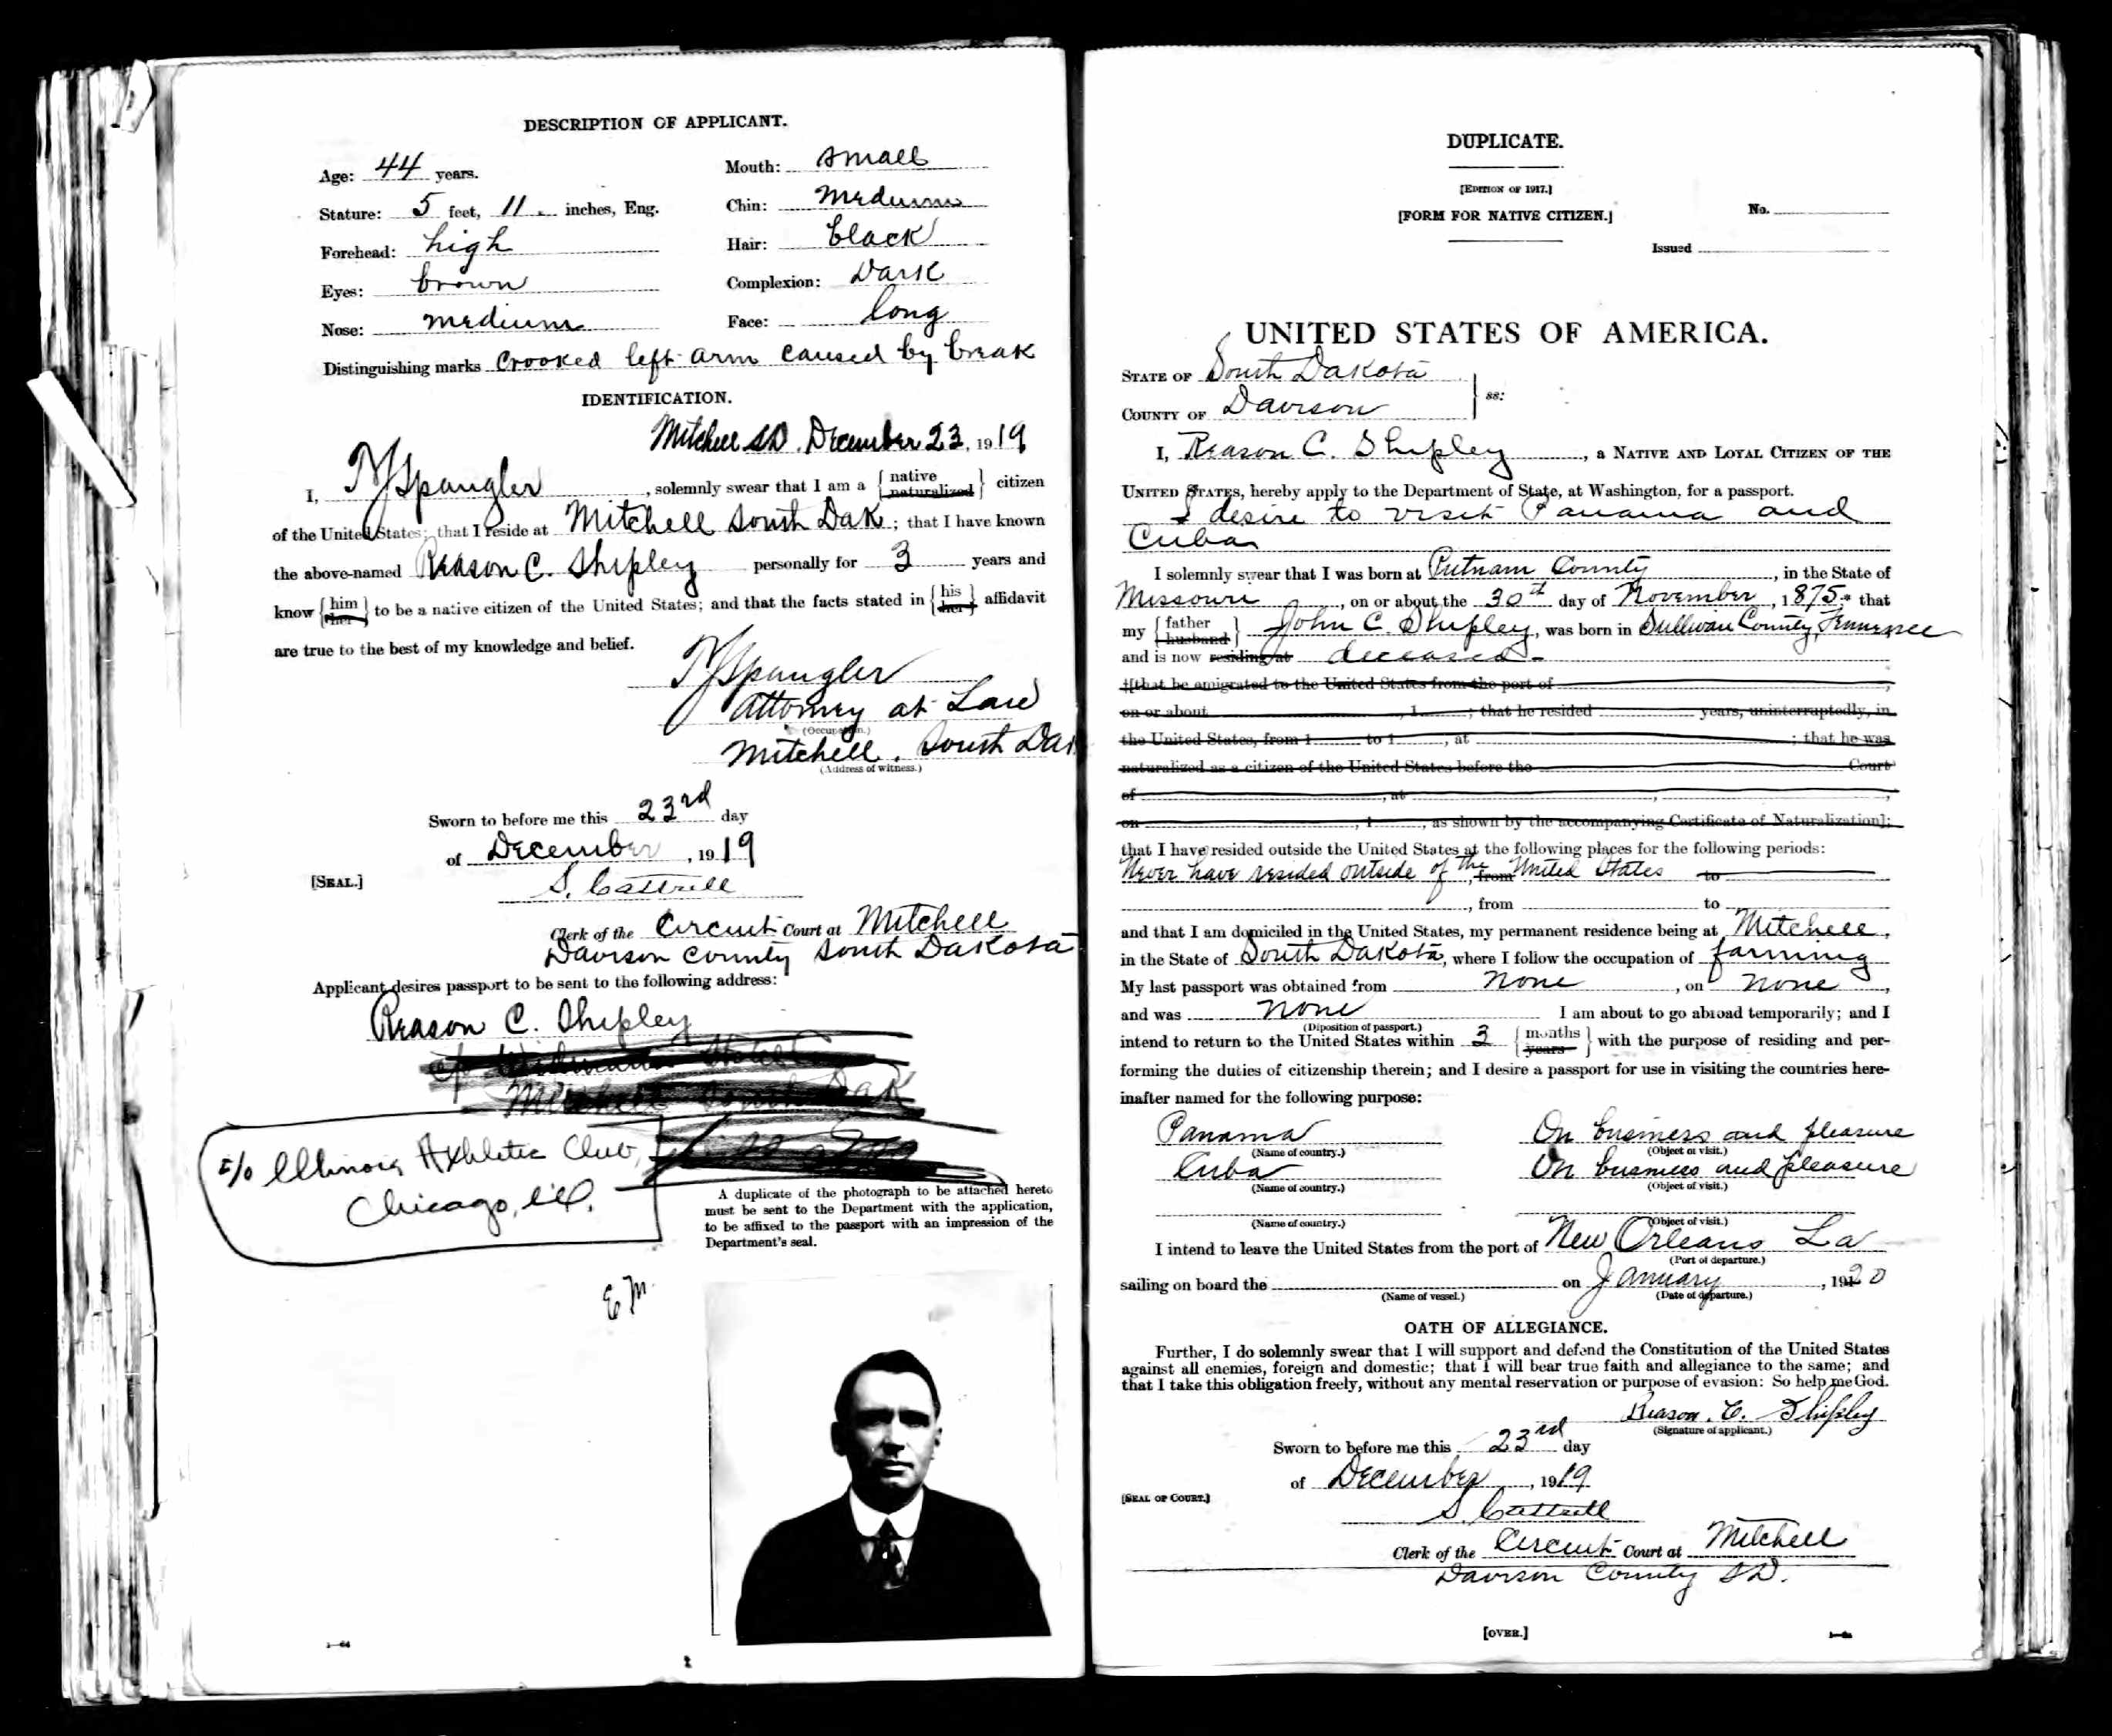 DESCRIPTION OF APPLICANT.
Age: 44 years.
Mouth: small
Stature: 5 feet, 11 inches, Eng.
Chin: Medium
Forehead: high
Hair: black
Eyes: brown
Complexion: Dark
Nose: medium
Face: long
Distinguishing marks Crooked left arm caused by break
IDENTIFICATION.
Mitchell S.D. December 23, 1919
I, TJ Spangler, solemnly swear that I am a {native naturalized} citizen
of the United States; that I reside at Mitchell South Dak; that I have known
the above-named Reason C. Shipley personally for 3 years and
know {him her} to be a native citizen of the United States; and that the facts stated in {his her} affidavit
are true to the best of my knowledge and belief.
TJ Spangler
Attorney at Law
(Occupation.)
Mitchell, South Dak
(Address of witness.)
Sworn to before me this 23rd day
of December, 1919
[SEAL.]
S. Cattrell
Clerk of the Circuit Court at Mitchell
Davison County South Dakota
Applicant desires passport to be sent to the following address:
Reason C. Shipley
Mitchell South Dak
c/o Illinois Athletic Club,
Chicago, Ill.
A duplicate of the photograph to be attached hereto
must be sent to the Department with the application,
to be affixed to the passport with an impression of the
Department's seal.
E M.
DUPLICATE.
[EDITION OF 1917.]
[FORM FOR NATIVE CITIZEN.]
No.
Issued
UNITED STATES OF AMERICA.
STATE OF South Dakota
COUNTY OF Davison
ss:
I, Reason C. Shipley, a NATIVE AND LOYAL CITIZEN OF THE
UNITED STATES, hereby apply to the Department of State, at Washington, for a passport.
I desire to visit Panama and
Cuba
I solemnly swear that I was born at Putnam County, in the State of
Missouri, on or about the 30th day of November, 1875* that
my {father husband} John C. Shipley, was born in Sullivan County, Tennessee
and is now residing at deceased-
†[that he emigrated to the United States from the port of
on or about , 1 ; that he resided years, uninterruptedly, in
the United States, from 1 to 1 , at ; that he was
naturalized as a citizen of the United States before the Court
of , at , ,
on , 1 , as shown by the accompanying Certificate of Naturalization];
that I have resided outside the United States at the following places for the following periods:
Never have resided outside of the from United States to
, from to
and that I am domiciled in the United States, my permanent residence being at Mitchell,
in the State of South Dakota, where I follow the occupation of farming
My last passport was obtained from none, on none,
and was none I am about to go abroad temporarily; and I
(Diposition of passport.)
intend to return to the United States within 3 {months years} with the purpose of residing and per-
forming the duties of citizenship therein; and I desire a passport for use in visiting the countries here-
inafter named for the following purpose:
Panama On business and pleasure
(Name of country.) (Object of visit.)
Cuba On business and pleasure
(Name of country.) (Object of visit.)
(Name of country.) (Object of visit.)
I intend to leave the United States from the port of New Orleans La
(Port of departure.)
sailing on board the on January, 1920
(Name of vessel.) (Date of departure.)
OATH OF ALLEGIANCE.
Further, I do solemnly swear that I will support and defend the Constitution of the United States
against all enemies, foreign and domestic; that I will bear true faith and allegiance to the same; and
that I take this obligation freely, without any mental reservation or purpose of evasion: So help me God.
Reason. C. Shipley
(Signature of applicant.)
Sworn to before me this 23rd day
of December, 1919
[SEAL OF COURT.]
S. Cattrell
Clerk of the Circuit Court at Mitchell
Davison County SD.
[OVER.]